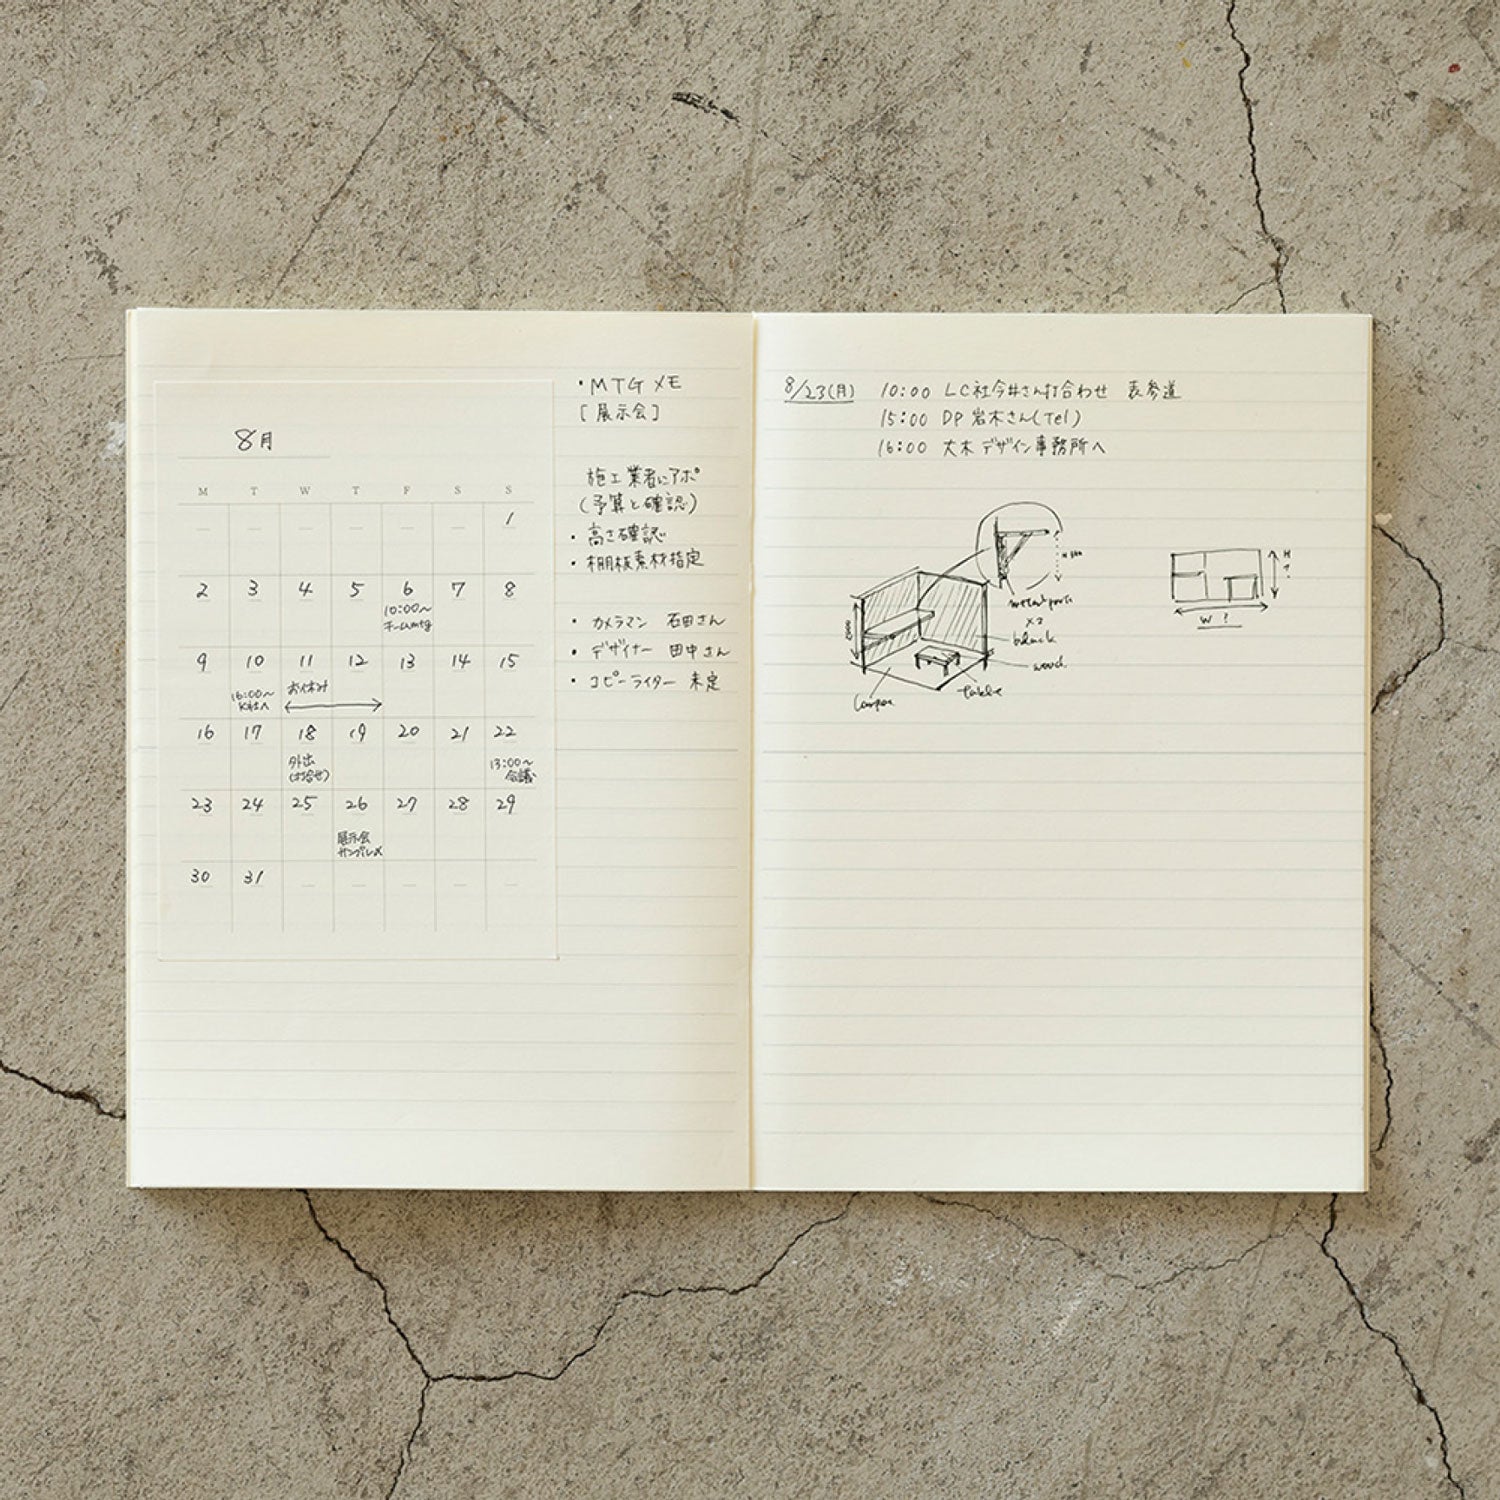 8月
M T W T F S S
1
2 3 4 5 6 7 8
10:00〜
チームmtg
9 10 11 12 13 14 15
16:00〜
K社へ
お休み
16 17 18 19 20 21 22
外出
(打合せ)
13:00〜
会議
23 24 25 26 27 28 29
展示会
サンプル〆
30 31
・MTG メモ
[展示会]
施工業者にアポ
(予算と確認)
・高さ確認
・棚板素材指定
・カメラマン 石田さん
・デザイナー 田中さん
・コピーライター 未定
8/23(月) 10:00 LC社今井さん打合わせ 表参道
15:00 DP 岩木さん(Tel)
16:00 大木デザイン事務所へ
metal parts
×2
black
wood
table
H
?
W ?